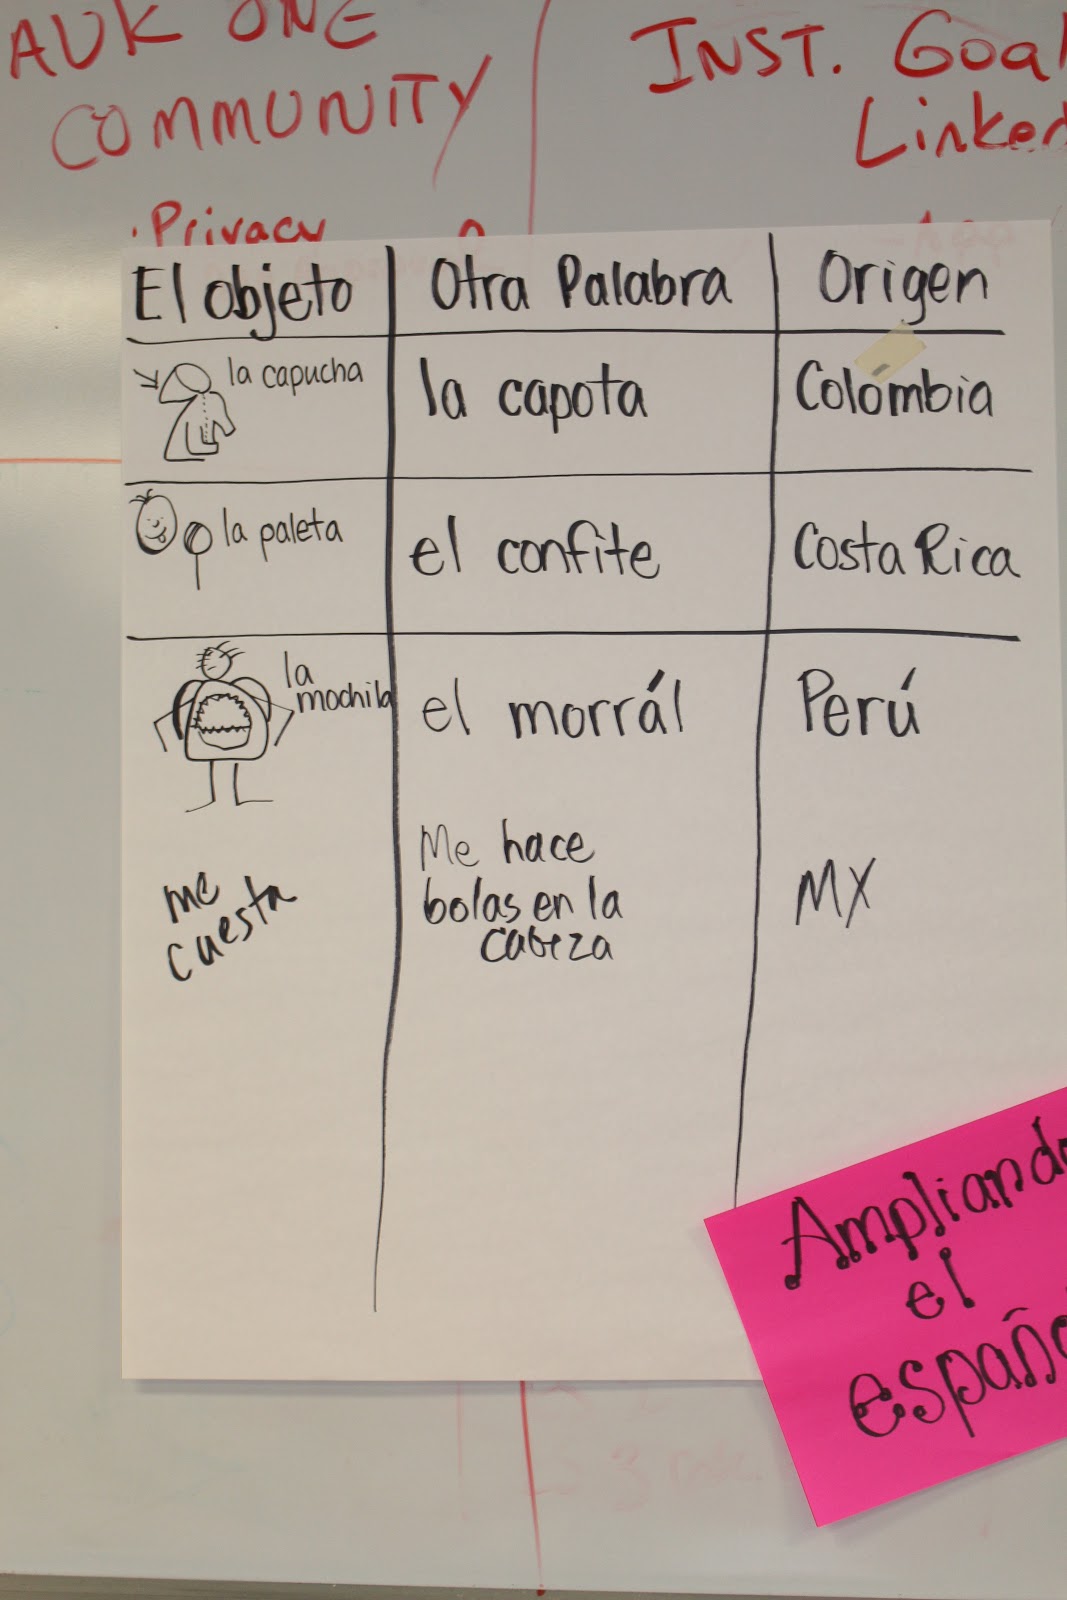 AUK ONE
COMMUNITY
INST. Goal
Linked
· Privacy
El objeto
Otra Palabra
Origen
la capucha
la capota
Colombia
la paleta
el confite
Costa Rica
la
mochila
el morrál
Perú
me
cuesta
Me hace
bolas en la
cabeza
MX
Ampliando
el
españo